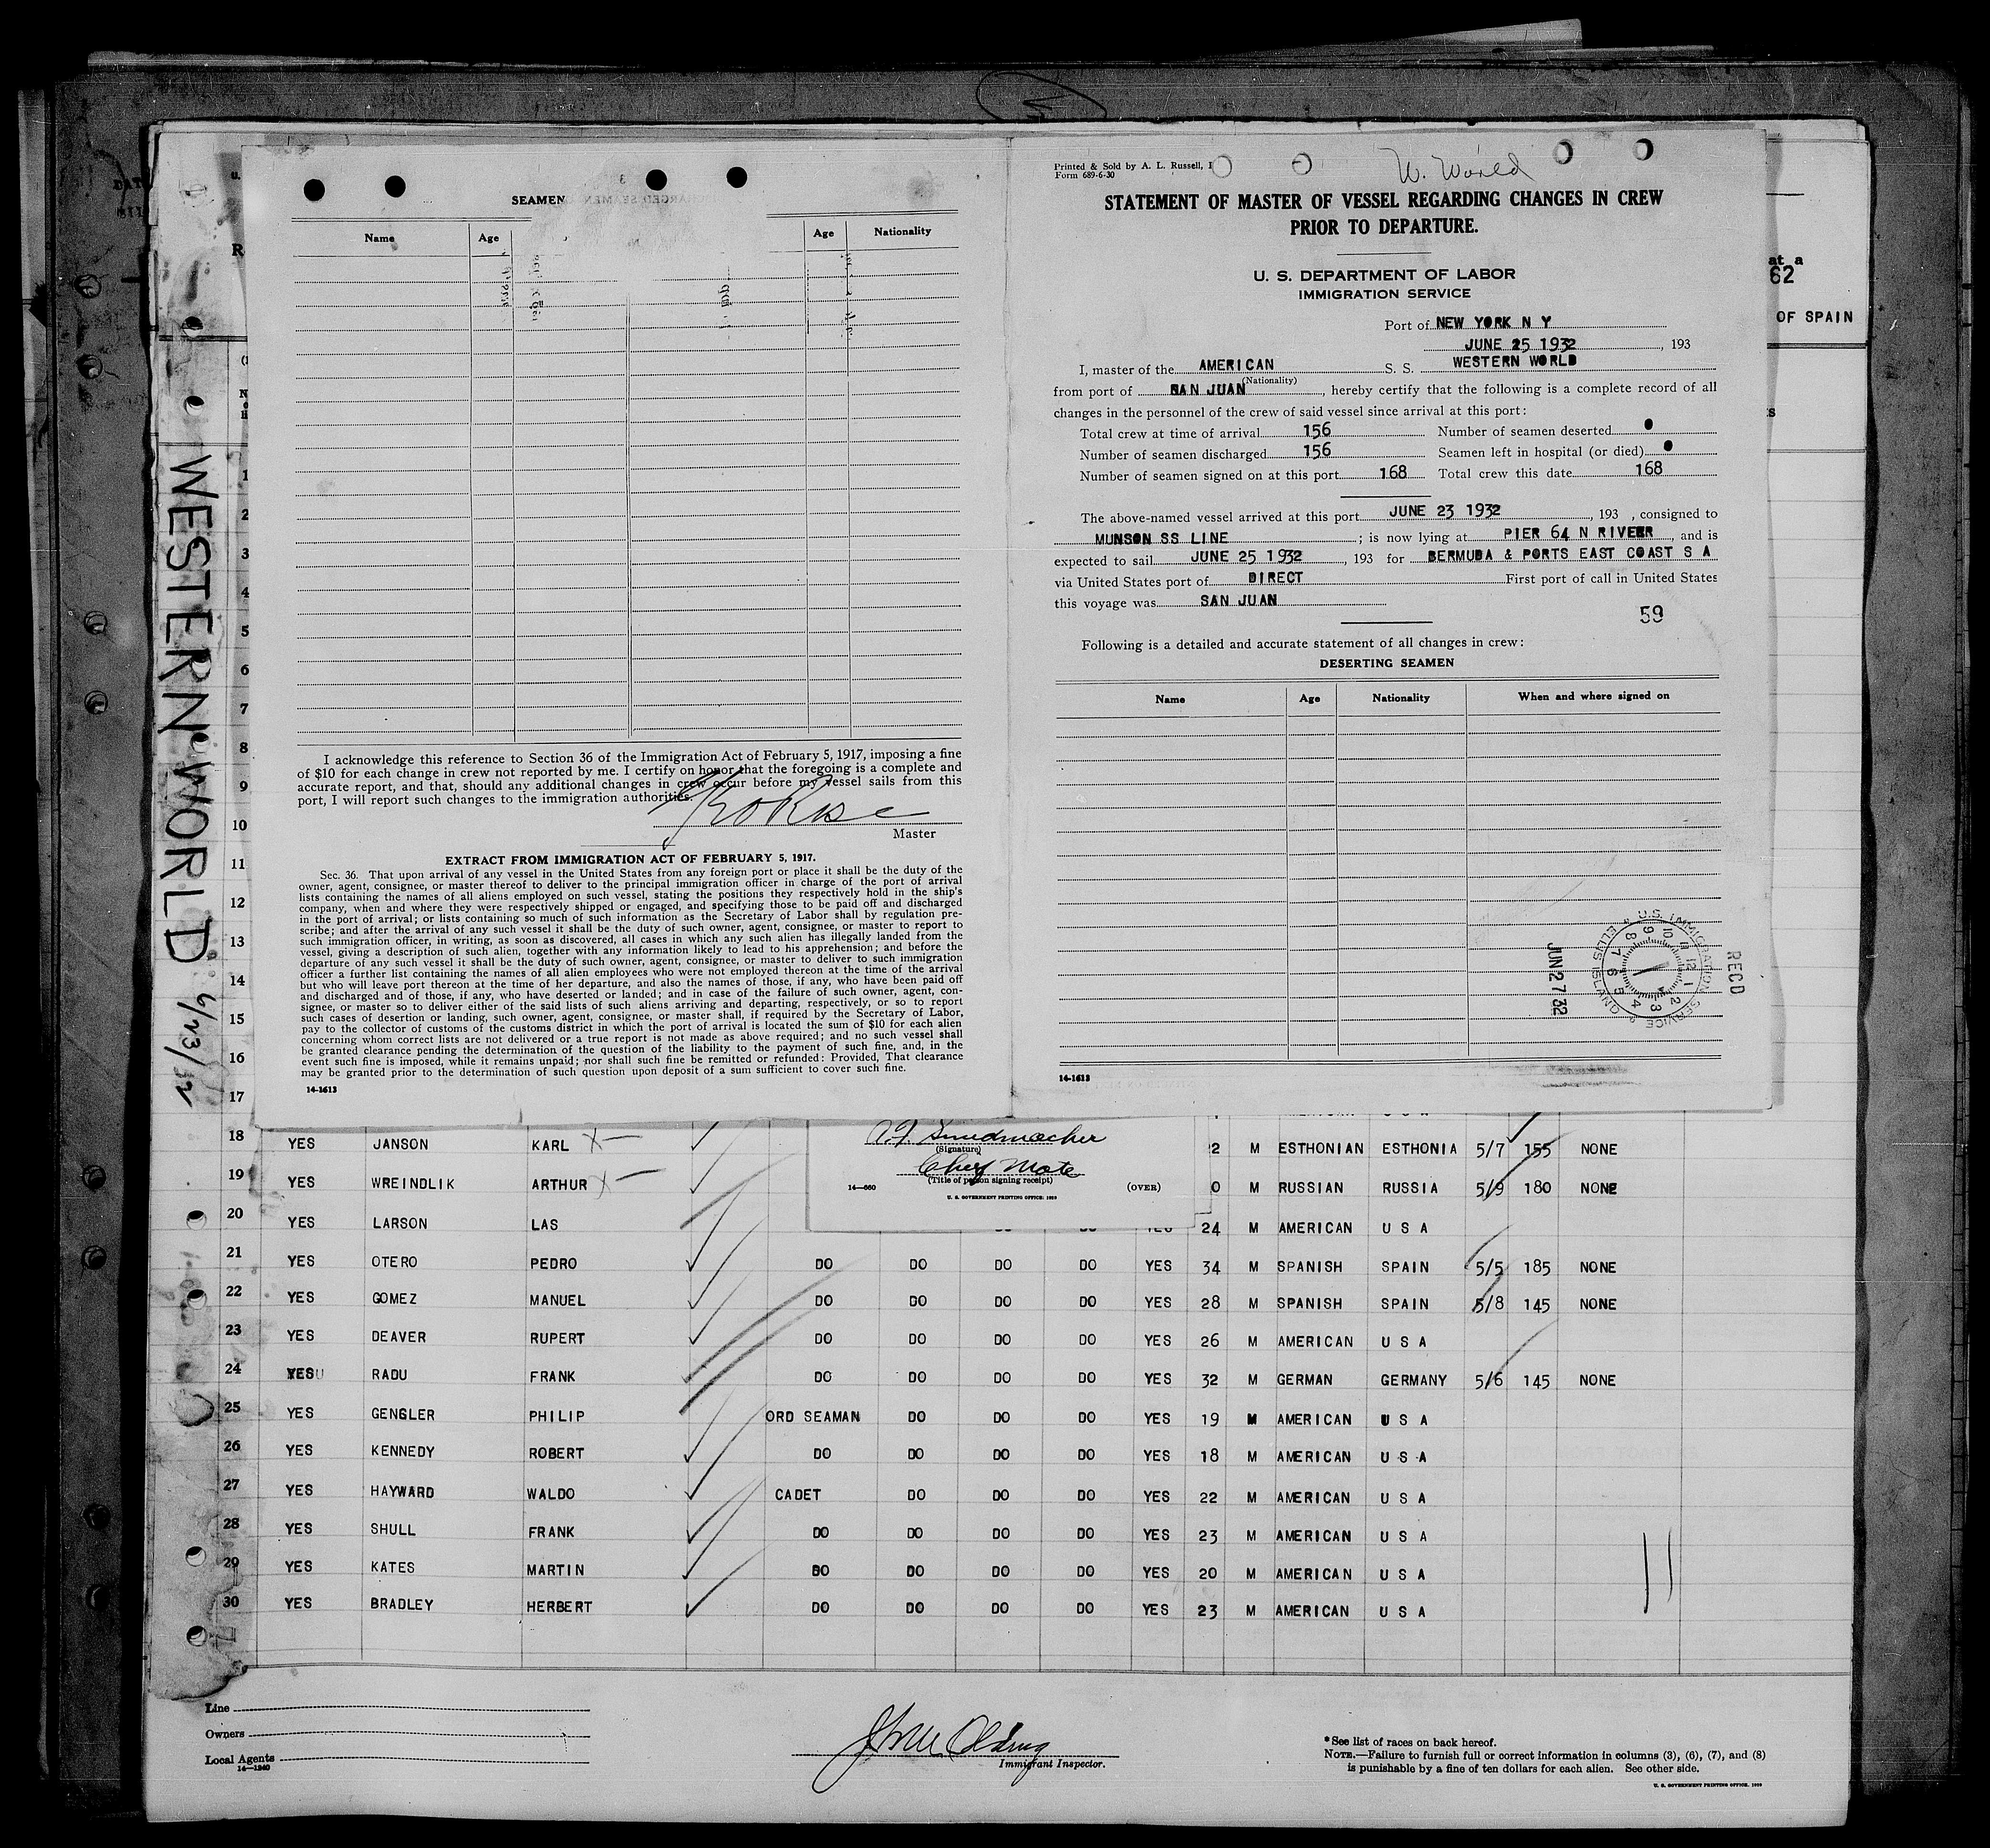 SEAMEN
Name Age Age Nationality
I acknowledge this reference to Section 36 of the Immigration Act of February 5, 1917, imposing a fine
of $10 for each change in crew not reported by me. I certify on honor that the foregoing is a complete and
accurate report, and that, should any additional changes in crew occur before my vessel sails from this
port, I will report such changes to the immigration authorities.
Master
EXTRACT FROM IMMIGRATION ACT OF FEBRUARY 5, 1917.
Sec. 36. That upon arrival of any vessel in the United States from any foreign port or place it shall be the duty of the
owner, agent, consignee, or master thereof to deliver to the principal immigration officer in charge of the port of arrival
lists containing the names of all aliens employed on such vessel, stating the positions they respectively hold in the ship's
company, when and where they were respectively shipped or engaged, and specifying those to be paid off and discharged
in the port of arrival; or lists containing so much of such information as the Secretary of Labor shall by regulation pre-
scribe; and after the arrival of any such vessel it shall be the duty of such owner, agent, consignee, or master to report to
such immigration officer, in writing, as soon as discovered, all cases in which any such alien has illegally landed from the
vessel, giving a description of such alien, together with any information likely to lead to his apprehension; and before the
departure of any such vessel it shall be the duty of such owner, agent, consignee, or master to deliver to such immigration
officer a further list containing the names of all alien employees who were not employed thereon at the time of the arrival
but who will leave port thereon at the time of her departure, and also the names of those, if any, who have been paid off
and discharged and of those, if any, who have deserted or landed; and in case of the failure of such owner, agent, con-
signee, or master so to deliver either of the said lists of such aliens arriving and departing, respectively, or so to report
such cases of desertion or landing, such owner, agent, consignee, or master shall, if required by the Secretary of Labor,
pay to the collector of customs of the customs district in which the port of arrival is located the sum of $10 for each alien
concerning whom correct lists are not delivered or a true report is not made as above required; and no such vessel shall
be granted clearance pending the determination of the question of the liability to the payment of such fine, and, in the
event such fine is imposed, while it remains unpaid; nor shall such fine be remitted or refunded: Provided, That clearance
may be granted prior to the determination of such question upon deposit of a sum sufficient to cover such fine.
14-1613
Printed & Sold by A. L. Russell,
Form 689-6-30
W. World
STATEMENT OF MASTER OF VESSEL REGARDING CHANGES IN CREW
PRIOR TO DEPARTURE.
U. S. DEPARTMENT OF LABOR
IMMIGRATION SERVICE
Port of NEW YORK N Y
JUNE 25 1932, 193
I, master of the AMERICAN S. S. WESTERN WORLD
(Nationality)
from port of SAN JUAN, hereby certify that the following is a complete record of all
changes in the personnel of the crew of said vessel since arrival at this port:
Total crew at time of arrival 156 Number of seamen deserted
Number of seamen discharged 156 Seamen left in hospital (or died)
Number of seamen signed on at this port 168 Total crew this date 168
The above-named vessel arrived at this port JUNE 23 1932, 193 , consigned to
MUNSON SS LINE ; is now lying at PIER 64 N RIVEER, and is
expected to sail JUNE 25 1932, 193 for BERMUDA & PORTS EAST COAST S A
via United States port of DIRECT First port of call in United States
this voyage was SAN JUAN
59
Following is a detailed and accurate statement of all changes in crew:
DESERTING SEAMEN
Name Age Nationality When and where signed on
RECD
U.S. IMMIGRATION SERVICE
ELLIS ISLAND
12 1 2 3 4 5 6 7 8 9 10 11
JUN 27 32
14-1613
at a
62
OF SPAIN
WESTERN WORLD 6/23/32
1
2
3
4
5
6
7
8
9
10
11
12
13
14
15
16
17
(Signature)
Chief Mate
(Title of person signing receipt)
14-680 (OVER)
U. S. GOVERNMENT PRINTING OFFICE: 1929
18 YES JANSON KARL X— 2 M ESTHONIAN ESTHONIA 5/7 155 NONE
19 YES WREINDLIK ARTHUR X— 0 M RUSSIAN RUSSIA 5/9 180 NONE
20 YES LARSON LAS 24 M AMERICAN U S A
21 YES OTERO PEDRO DO DO DO DO YES 34 M SPANISH SPAIN 5/5 185 NONE
22 YES GOMEZ MANUEL DO DO DO DO YES 28 M SPANISH SPAIN 5/8 145 NONE
23 YES DEAVER RUPERT DO DO DO DO YES 26 M AMERICAN U S A
24 YES RADU FRANK DO DO DO DO YES 32 M GERMAN GERMANY 5/6 145 NONE
25 YES GENGLER PHILIP ORD SEAMAN DO DO DO YES 19 M AMERICAN U S A
26 YES KENNEDY ROBERT DO DO DO DO YES 18 M AMERICAN U S A
27 YES HAYWARD WALDO CADET DO DO DO YES 22 M AMERICAN U S A
28 YES SHULL FRANK DO DO DO DO YES 23 M AMERICAN U S A
29 YES KATES MARTIN DO DO DO DO YES 20 M AMERICAN U S A
30 YES BRADLEY HERBERT DO DO DO DO YES 23 M AMERICAN U S A
Line
Owners
Local Agents
14-1240
Immigrant Inspector.
*See list of races on back hereof.
NOTE.—Failure to furnish full or correct information in columns (3), (6), (7), and (8)
is punishable by a fine of ten dollars for each alien. See other side.
U. S. GOVERNMENT PRINTING OFFICE: 1929